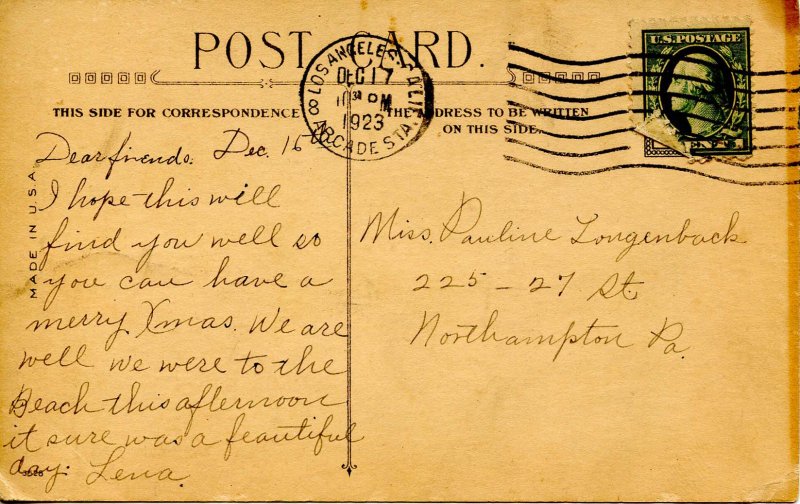 POST CARD.
THIS SIDE FOR CORRESPONDENCE
THE ADDRESS TO BE WRITTEN
ON THIS SIDE.
LOS ANGELES, CALIF.
DEC 17
PM
1923
ARCADE STA.
8
U.S. POSTAGE
MADE IN U.S.A.
Dear friends. Dec. 16
I hope this will
find you well so
you can have a
merry Xmas. We are
well we were to the
Beach this afternoon
it sure was a feautiful
day. Lena.
Miss. Pauline Longenback
225 - 27 St.
Northampton Pa.